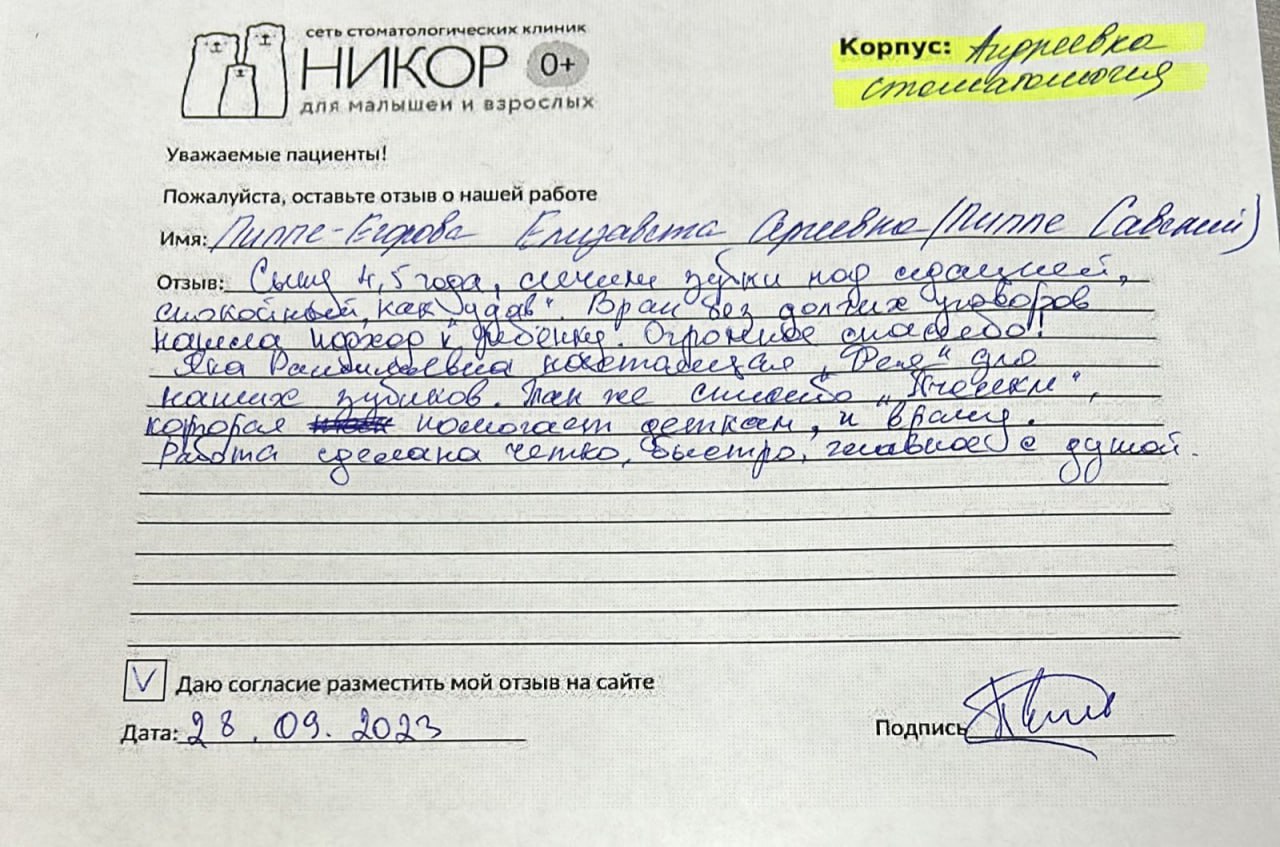 сеть стоматологических клиник
НИКОР 0+
для малышей и взрослых
Корпус: Андреевка
стоматология
Уважаемые пациенты!
Пожалуйста, оставьте отзыв о нашей работе
Имя: Пиппе-Егорова Елизавета Сергеевна (Пиппе Савелий)
Отзыв: Сыну 4,5 года, лечили зубки под седацией,
спокойный, как „удав“. Врач без долгих уговоров
нашла подход к ребёнку. Огромное спасибо!
Яна настоящая „Фея“ для
наших зубиков. Так же спасибо „Пчелки“,
которая помогает деткам, и врачу.
Работа сделана четко, быстро, главное с душой.
V Даю согласие разместить мой отзыв на сайте
Дата: 28.09.2023
Подпись